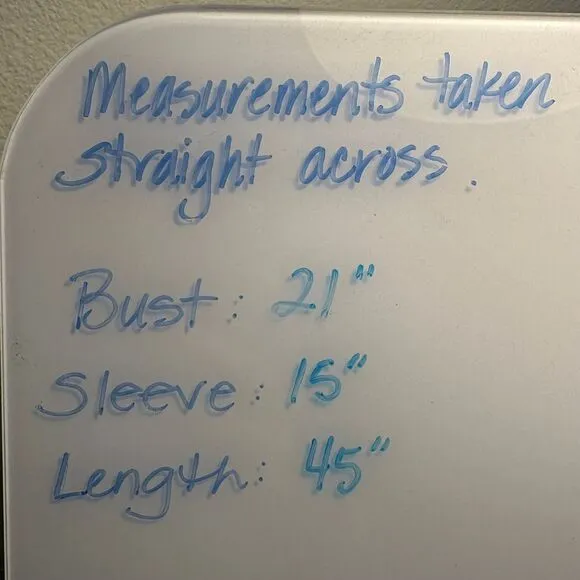 Measurements taken
straight across.
Bust: 21"
Sleeve: 15"
Length: 45"